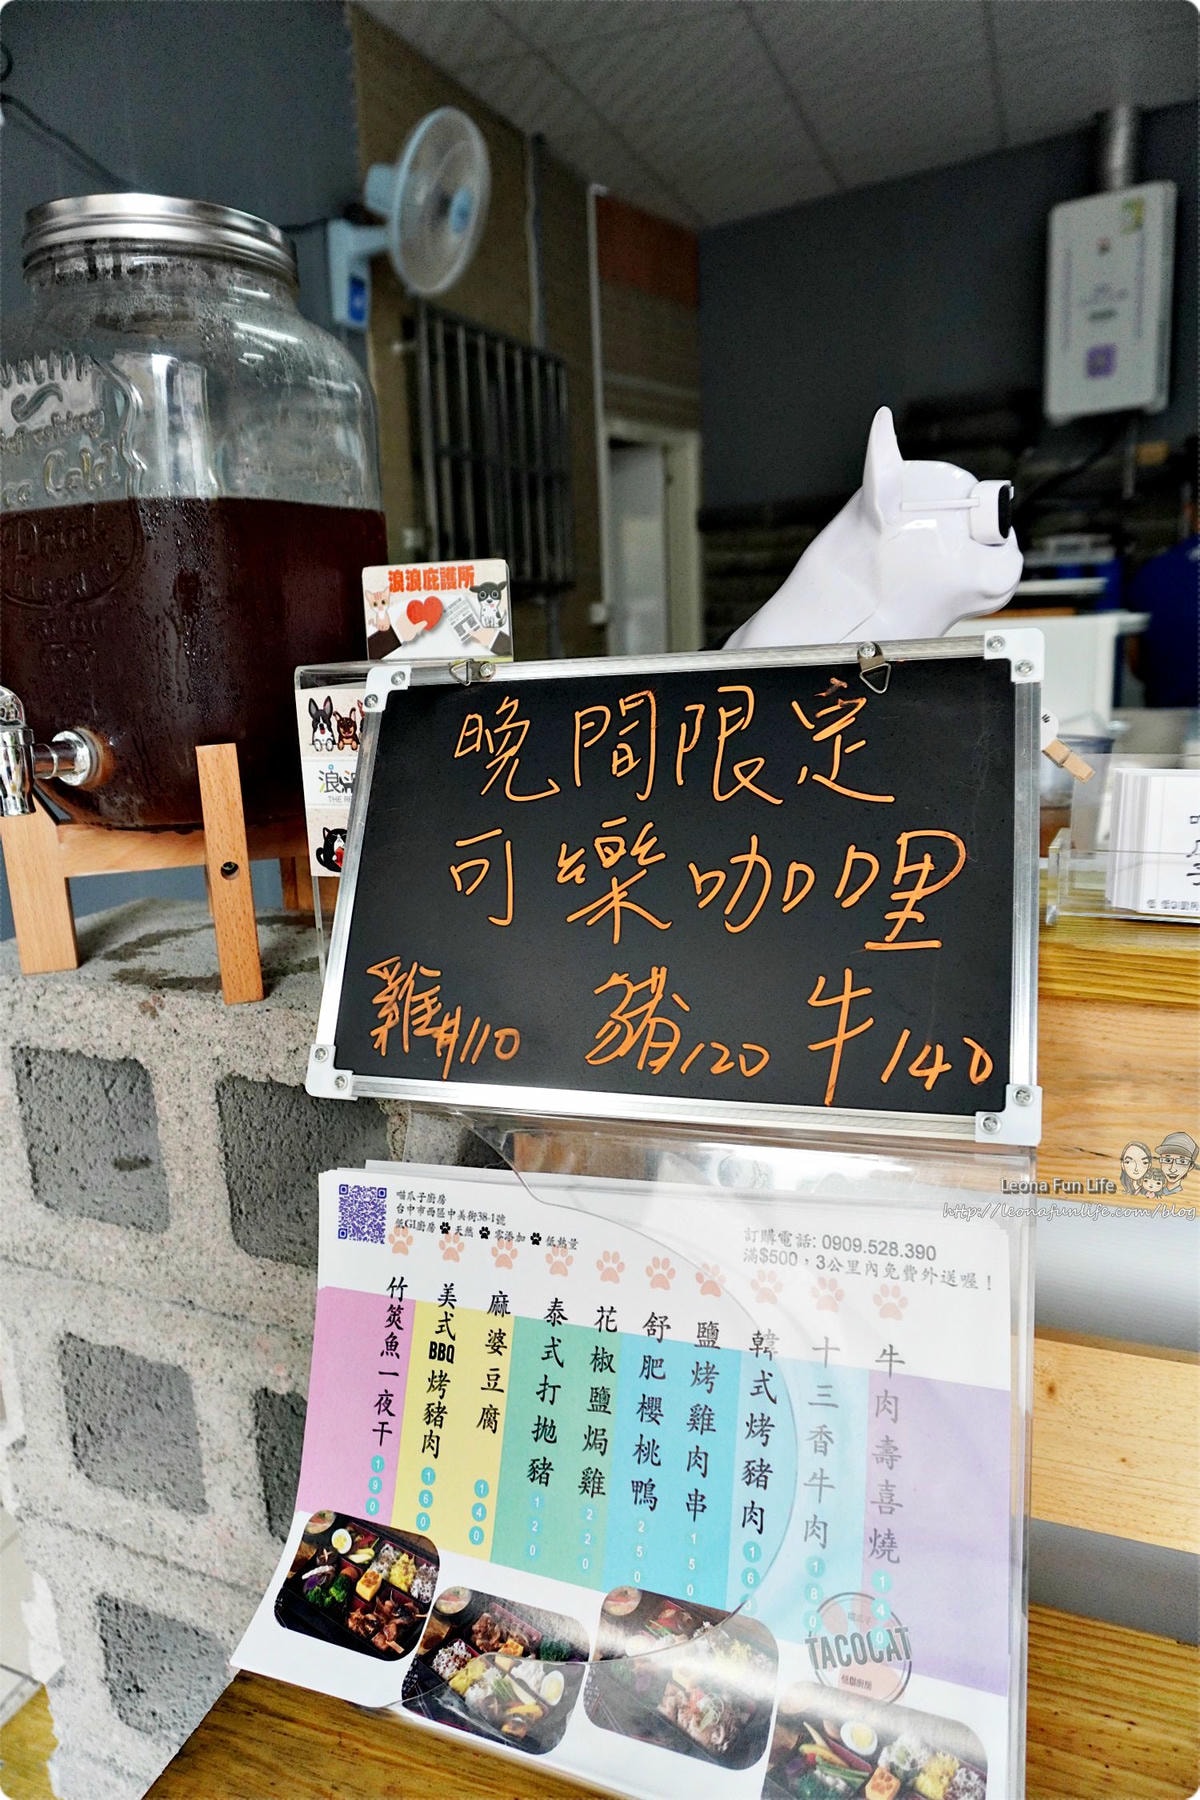 Drink
浪浪庇護所
晚間限定
可樂咖哩
雞110 豬120 牛140
Leona Fun Life
http://leonafunlife.com/blog
喵爪子廚房
台中市西區中美街38-1號
低GI廚房 天然 零添加 低熱量
訂購電話: 0909.528.390
滿$500，3公里內免費外送喔！
牛肉壽喜燒 140
十三香牛肉 180
韓式烤豬肉 160
鹽烤雞肉串 150
舒肥櫻桃鴨 250
花椒鹽焗雞 220
泰式打拋豬 120
麻婆豆腐 140
美式BBQ烤豬肉 160
竹筴魚一夜干 190
TACOCAT